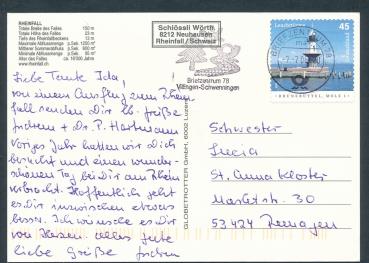 RHEINFALL
Totale Breite des Falles 150 m
Totale Höhe des Falles 23 m
Tiefe des Rheinfallbeckens 13 m
Maximale Abflussmenge p.Sek. 1250 m³
Mittlerer Sommerabfluss p.Sek. 600 m³
Minimale Abflussmenge p.Sek. m³
Alter des Falles ca. Jahre
www.rheinfall.ch
Schlössli Wörth
8212 Neuhausen
Rheinfall/Schweiz
Briefzentrum 78
Villingen-Schwenningen
BRIEFZENTRUM
45
Liebe Tante Ida,
von einem Ausflug zum Rhein-
fall senden Dir lb. Grüße
+ Dr. P. Hartmann
Voriges Jahr hatten wir Dich
besucht und einen wunder-
schönen Tag bei Dir am Rhein
verbracht. Hoffentlich geht
es Dir inzwischen etwas
besser. Ich wünsche es Dir
von Herzen. alles Gute
liebe Grüße
GLOBETROTTER GmbH, 6002 Luzern
Schwester
Lucia
St. Anna Kloster
Marktstr. 30
53424 Remagen